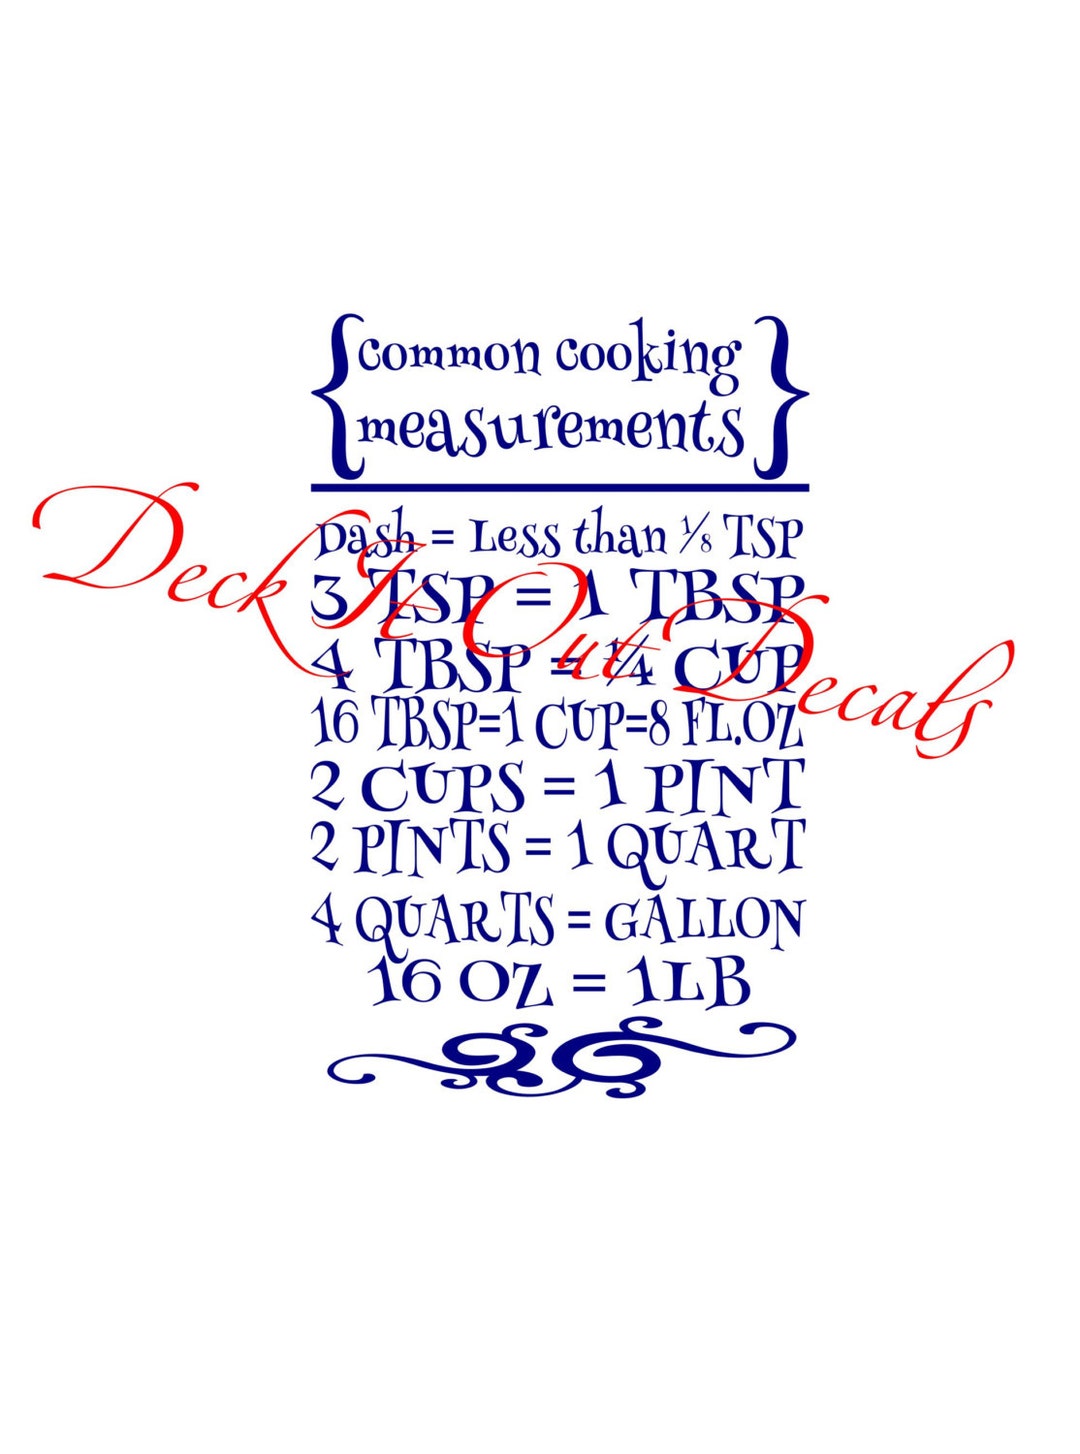 {common cooking
measurements}
Dash = Less than ⅛ TSP
3 TSP = 1 TBSP
4 TBSP = ¼ CUP
16 TBSP=1 CUP=8 FL.OZ
2 CUPS = 1 PINT
2 PINTS = 1 QUART
4 QUARTS = GALLON
16 OZ = 1LB
Deck It Out Decals